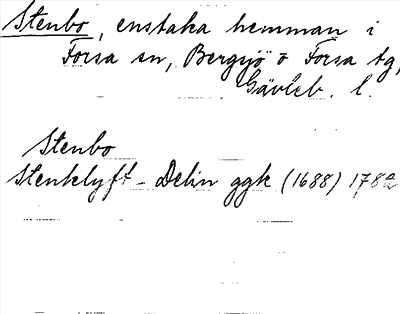 Stenbo, enstaka hemman i
Forsa sn, Bergsjö o Forsa tg,
Gävleb. l.
Stenbo
Stenklyft - Delin ggk (1688) 178